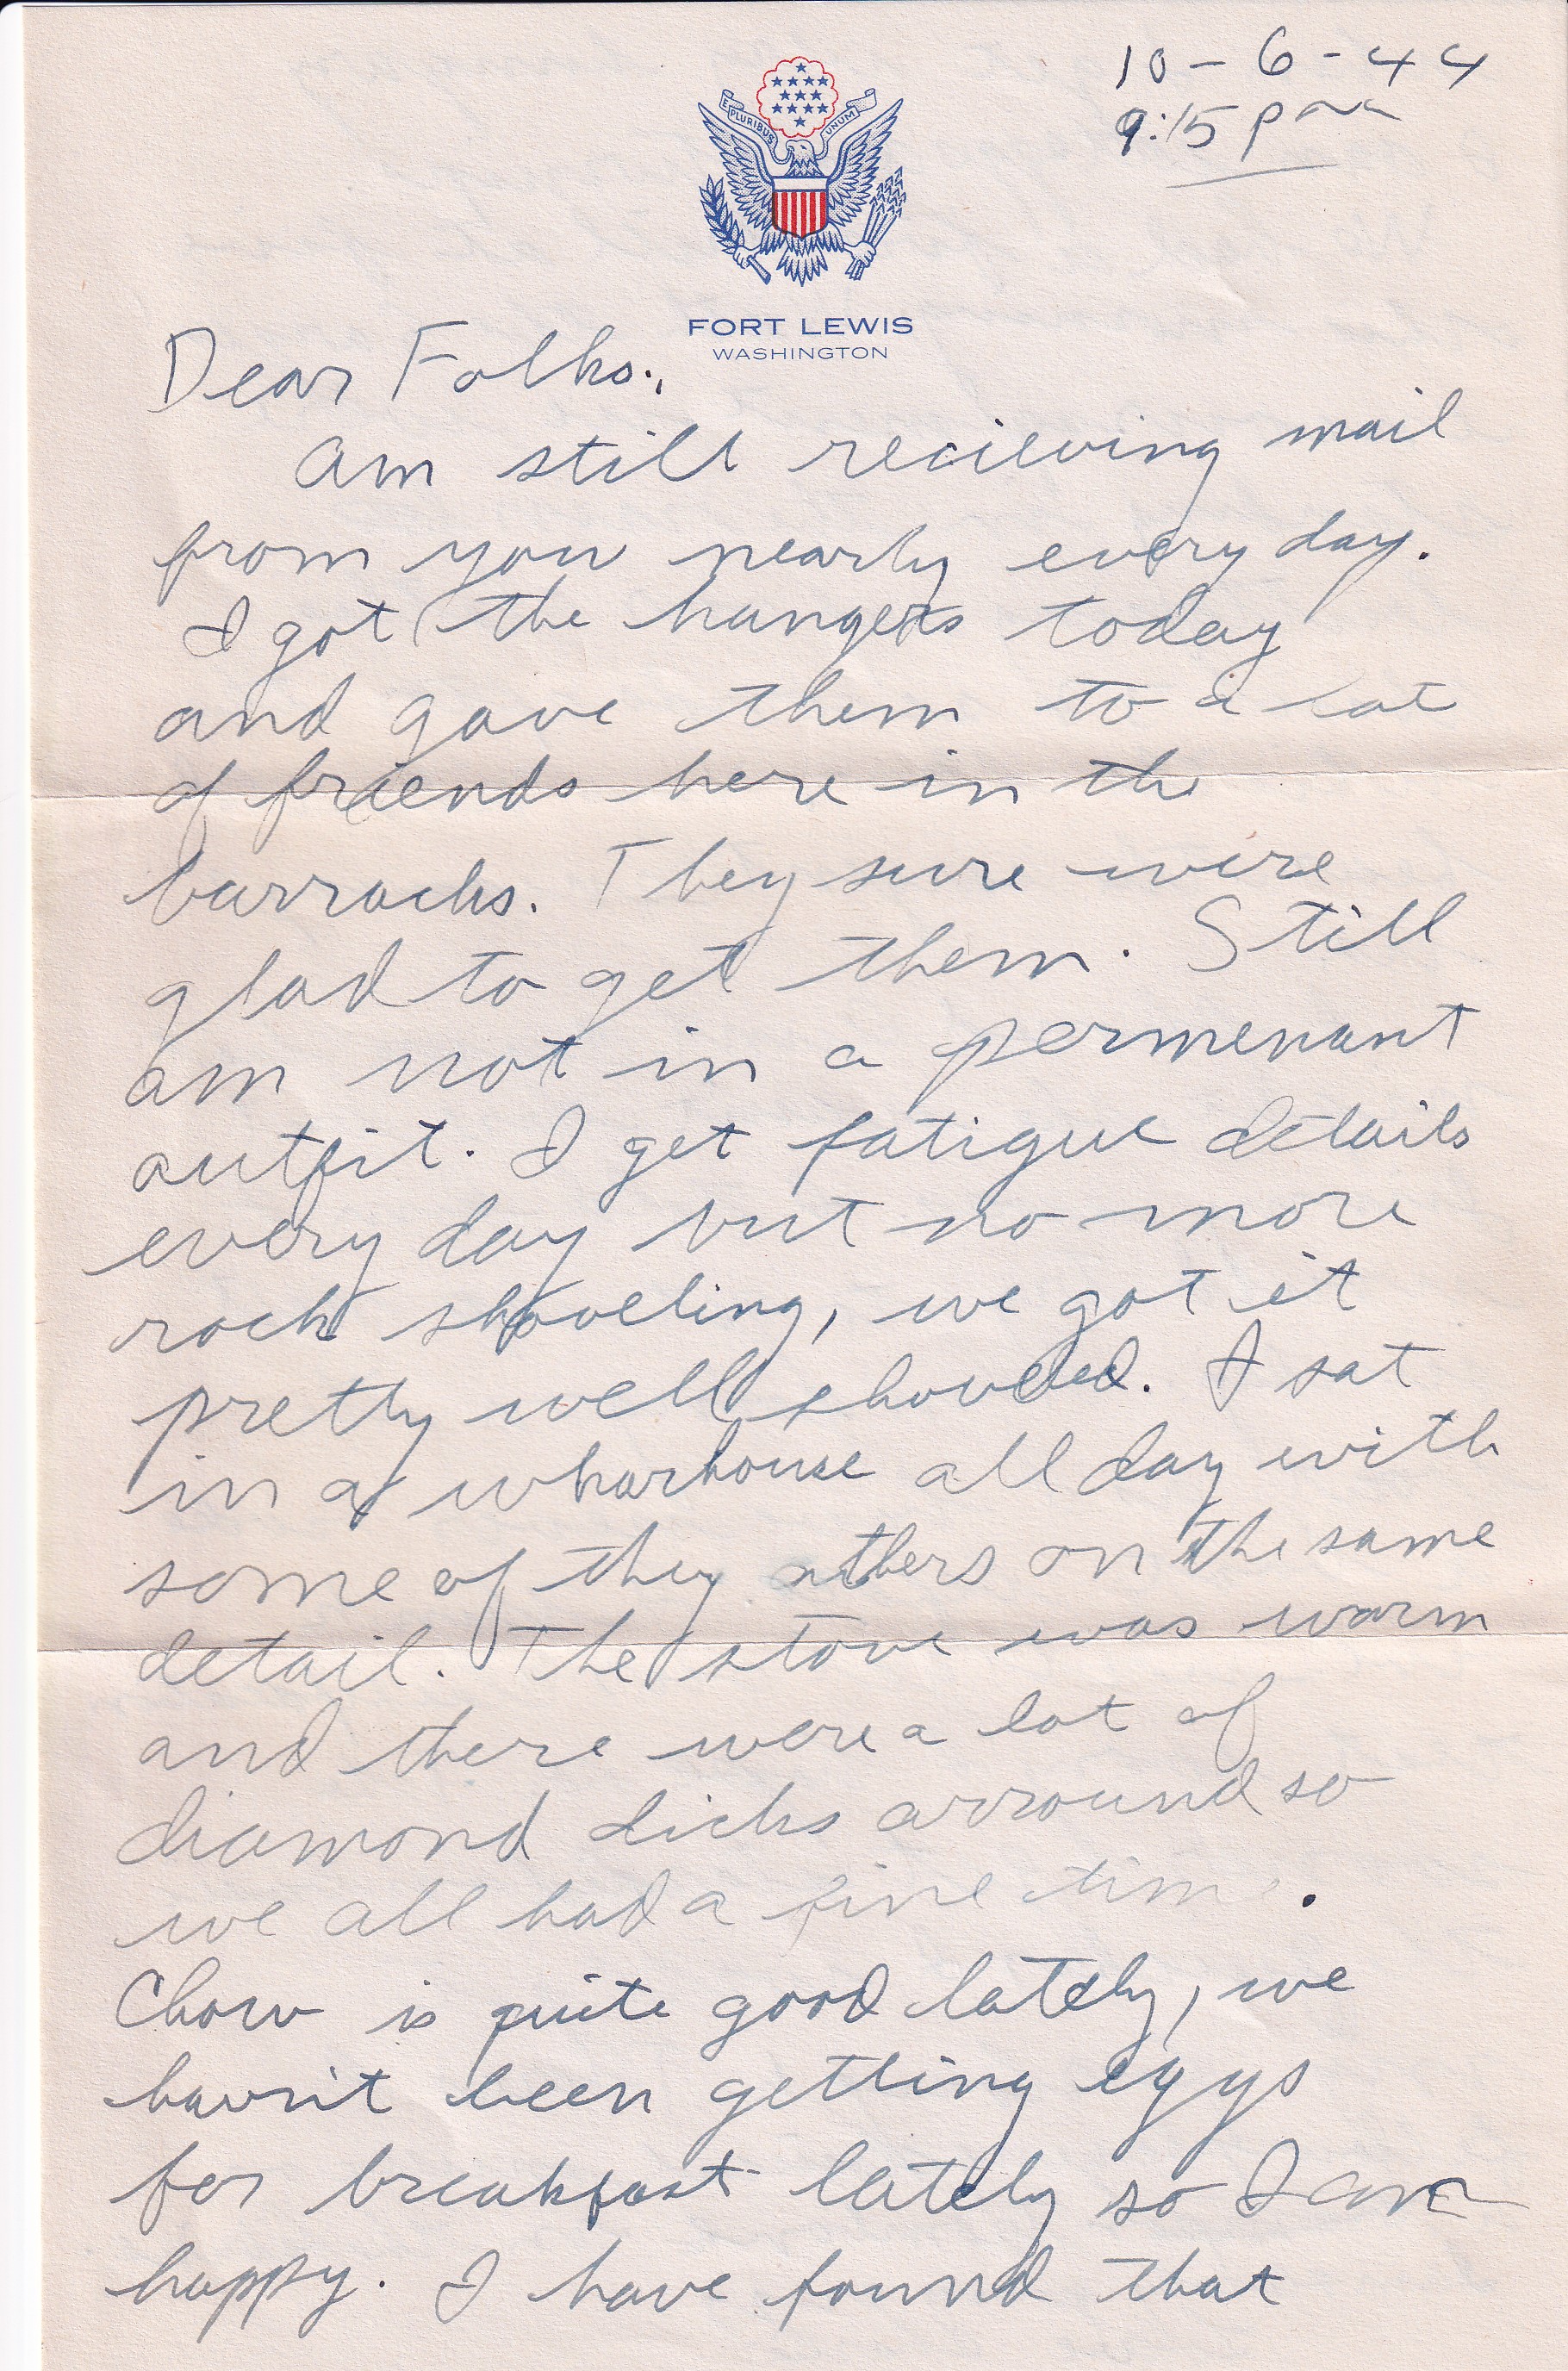 10-6-44
9:15 pm
E PLURIBUS UNUM
FORT LEWIS
WASHINGTON
Dear Folks.,
Am still recieving mail
from you nearly every day.
I got the hangers today
and gave them to a lot
of friends here in the
barracks. They sure were
glad to get them. Still
am not in a permenant
outfit. I get fatigue details
every day but no more
rock shoveling, we got it
pretty well shoveled. I sat
in a wharhouse all day with
some of they others on the same
detail. The stove was warm
and there were a lot of
diamond dicks arround so
we all had a fine time.
Chow is quite good lately, we
havn't been getting eggs
for breakfast lately so I am
happy. I have found that